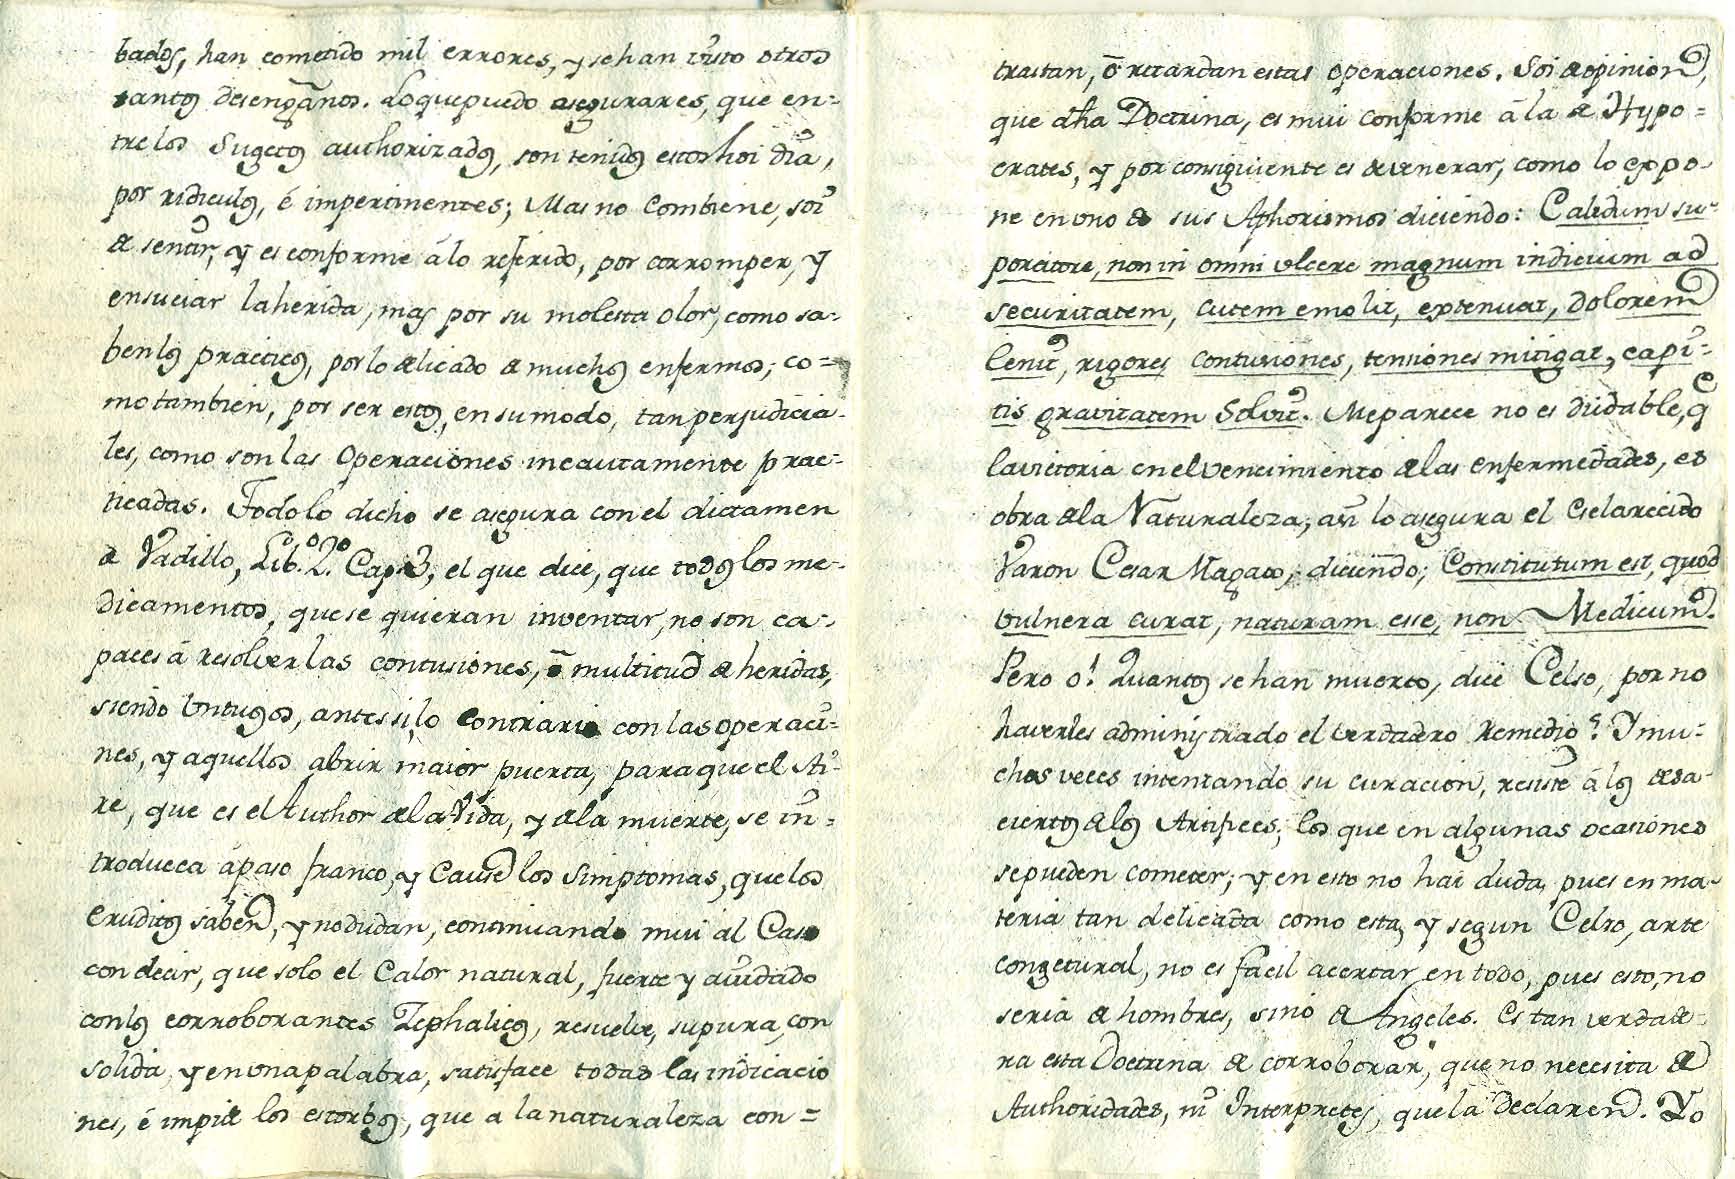 bados, han cometido mil errores, y se han visto otros
tantos desengaños. Lo que puedo asegurar es, que en=
tre los Sugetos authorizados, son tenidos estos hoi dia,
por ridiculos, é impertinentes; Mas no combiene, soi
de sentir, y es conforme à lo referido, por corromper, y
ensuciar la herida, mas por su molesta olor, como sa-
ben los practicos, por lo delicado de muchos enfermos; co=
mo tambien, por ser estos, en su modo, tan perjudicia-
les, como son las Operaciones incautamente prac-
ticadas. Todo lo dicho se asegura con el dictamen
de Vadillo, Lib.º 2.º Cap. 3, el que dice, que todos los me-
dicamentos, que se quieran inventar, no son ca-
paces à resolver las contusiones, ò multitud de heridas,
siendo Untuosos, antes si, lo contrario con las operacio-
nes, y aquellos abrir maior puerta, para que el Ai-
re, que es el Author de la Vida, y de la muerte, se in-
troduzca à paso franco, y Cause los Simptomas, que los
Eruditos saben, y no dudan, continuando mui al Caso
con decir, que solo el Calor natural, fuerte y aiudado
con los corroborantes Zephalicos, resuelve, supura, con
solida, y en una palabra, satisface todas las indicacio
nes, é impide los estorbos, que a la naturaleza con=
trastan, ò retardan estas operaciones. Soi de opinion,
que dha Doctrina, es mui conforme à la de Hypo=
crates, y por consiguiente es de venerar, como lo expo-
ne en uno de sus Aphorismos diciendo: Calidum su-
poratore, non in omni ulcere magnum indicium ad
securitatem, cutem emolit, extenuat, dolorem
lenit, rigores contusiones, tensiones mitigat, capi-
tis gravitatem Solvit. Me parece no es dudable, q.e
la victoria en el vencimiento de las enfermedades, es
obra de la Naturaleza, asi lo asegura el Esclarecido
Varon Cesar Magato, diciendo; Constitutum est, quod
vulnera curat, naturam esse, non Medicum.
Pero ò! Quantos se han muerto, dice Celso, por no
haverles administrado el verdadero Remedio? Y mu-
chas veces intentando su curacion, resiste à los desa-
ciertos de los Artifices; los que en algunas ocasiones
se pueden cometer; y en esto no hai duda, pues en ma-
teria tan delicada como esta, y segun Celso, arte
congetural, no es facil acertar en todo, pues esto, no
seria de hombres, sino de Angeles. Es tan verdade-
ra esta Doctrina de corroborar, que no necesita de
Authoridades, ni Interpretes, que la Declaren. Yo